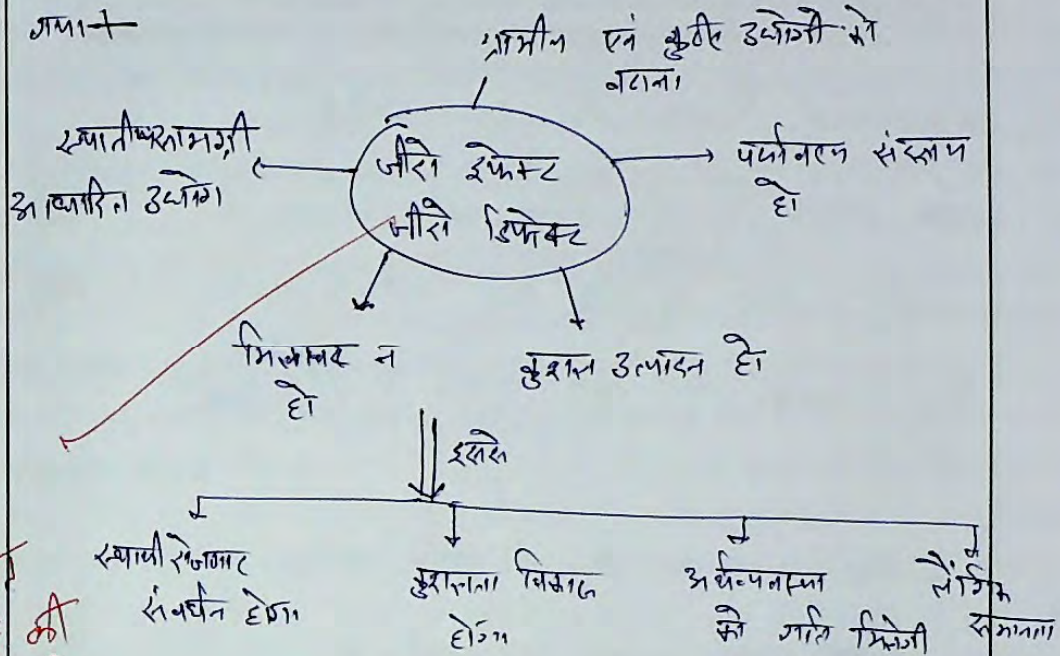 गया→
ग्रामीण एवं कुटीर उद्योगों को
बढाना
स्थानीय सामग्री
आधारित उद्योग
जीरो इफेक्ट
जीरो डिफेक्ट
पर्यावरण संरक्षण
हो
मिलावट न
हो
कुशल उत्पादन हो
इससे
स्थायी रोजगार
संवर्धन होगा
कुशलता विकास
होगा
अर्थव्यवस्था
को गति मिलेगी
लैंगिक
समानता
की